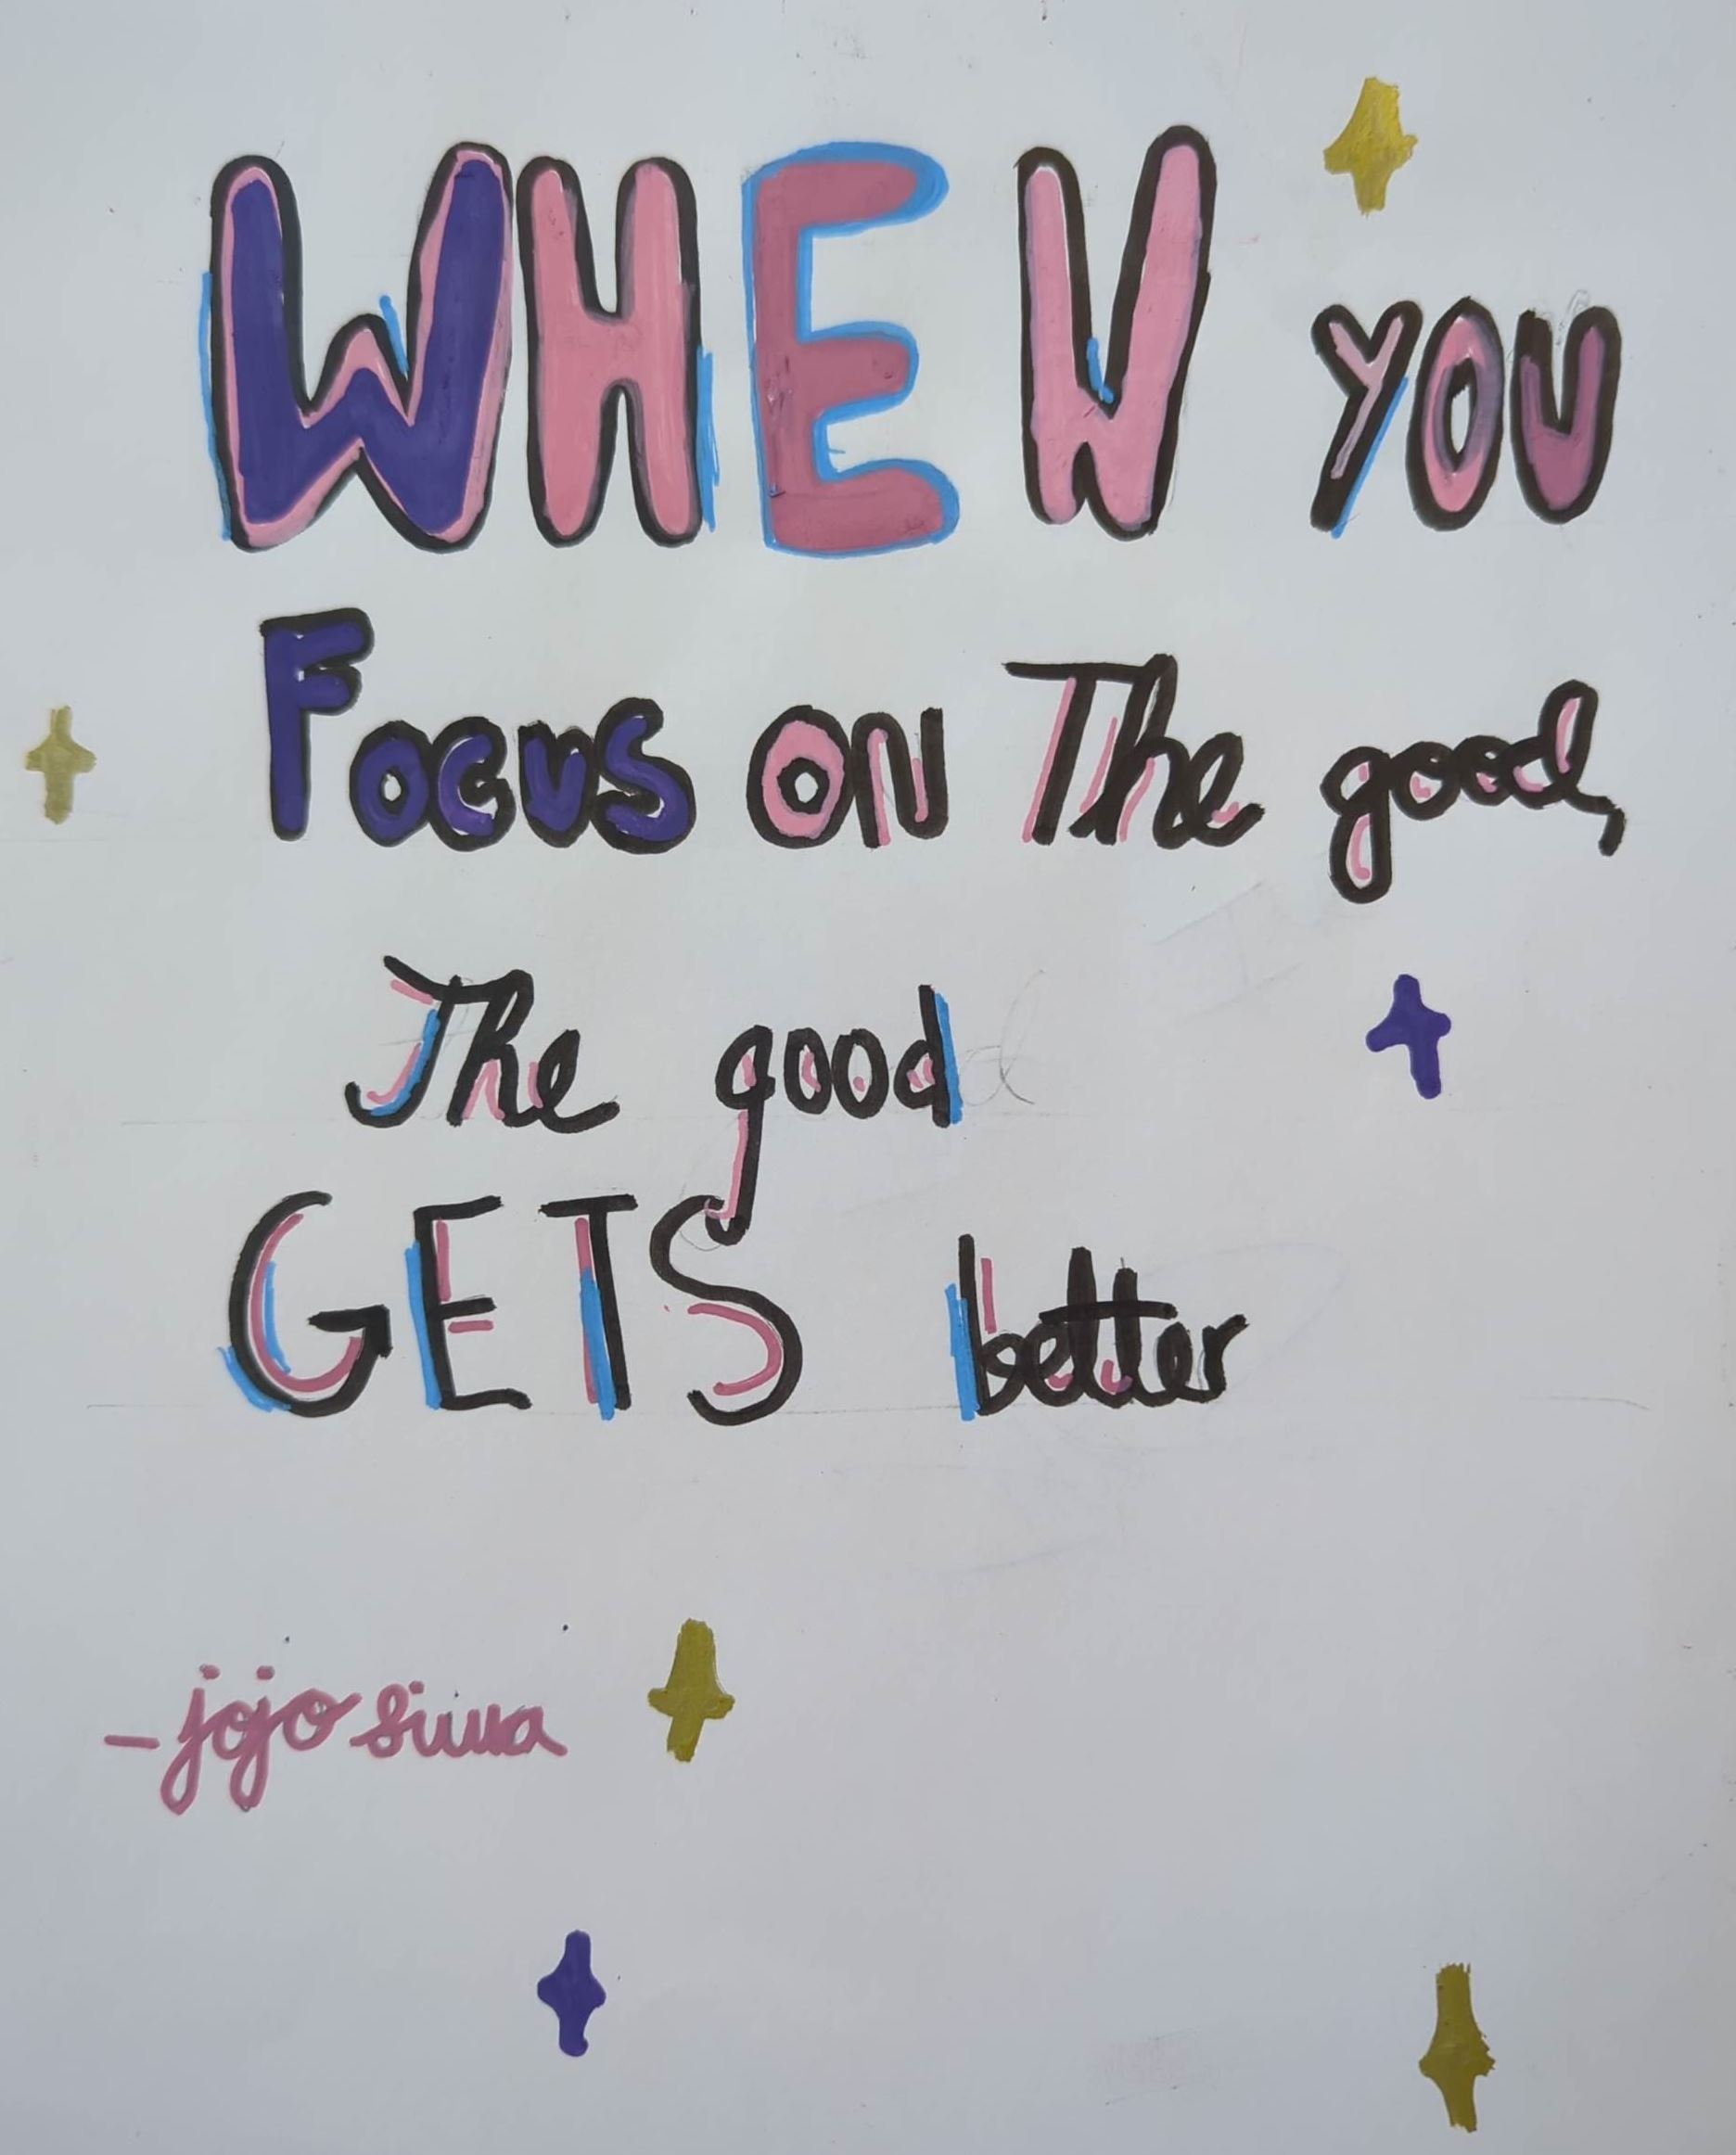 WHEN YOU
Focus ON The good,
The good
GETS better
- jojo siwa